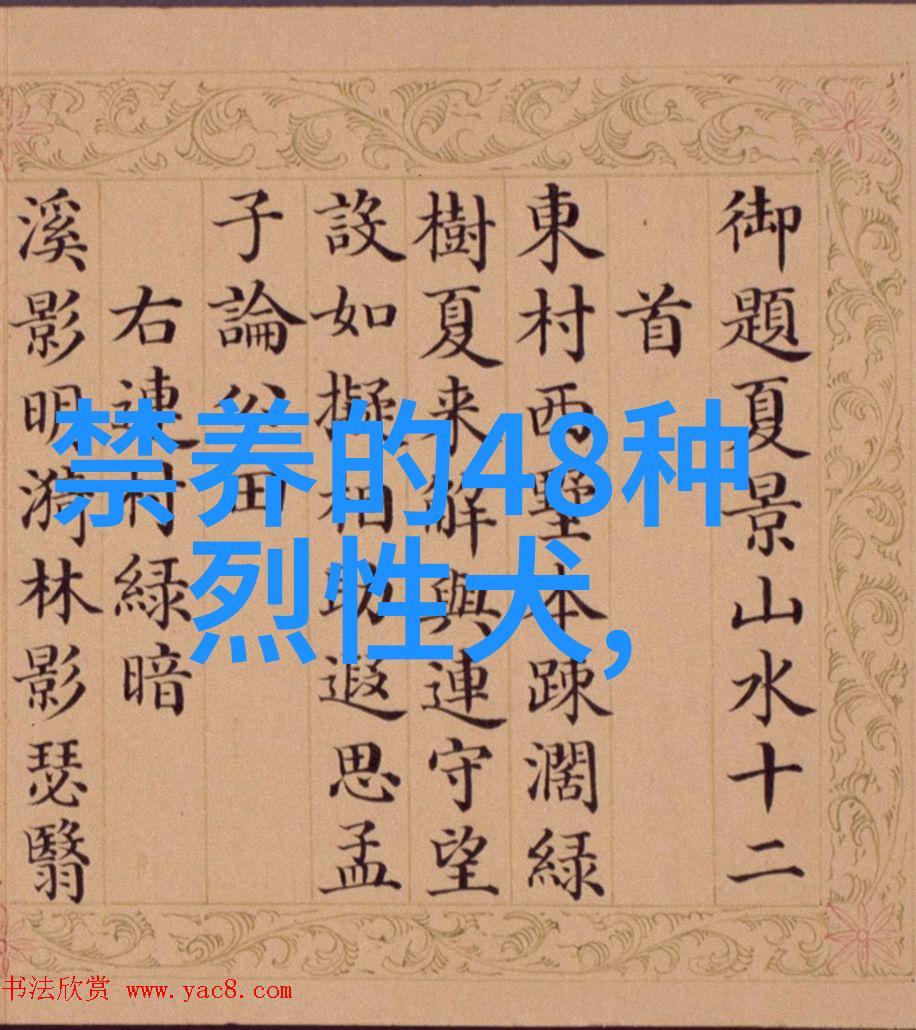 御題夏景山水十二
首
東村西墅本疎濶緑
樹夏来解與連守望
設如擬相助遐思孟
子論公田
右連村緑暗
溪影明漪林影瑟翳
禁养的48种
烈性犬,
书法欣赏 www.yac8.com